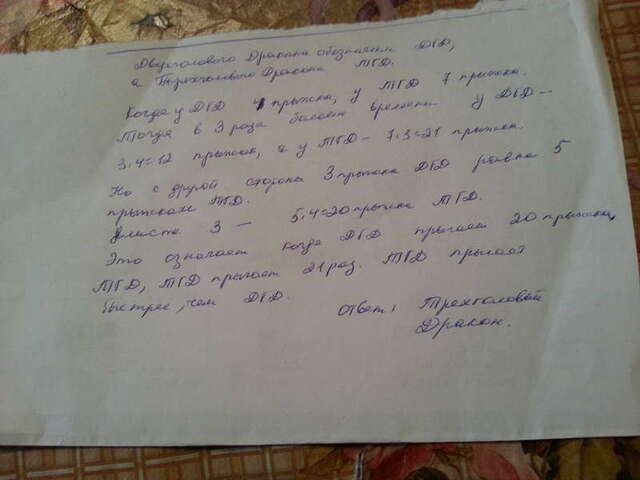 Двухголового Дракона обозначаем ДГД,
а Трёхголового Дракона ТГД.
Когда у ДГД 4 прыжка, у ТГД 7 прыжка.
Тогда в 3 раза больем времени у ДГД -
3·4=12 прыжок, а у ТГД - 7·3=21 прыжка.
Но с другой стороны 3 прыжка ДГД равна 5
прыжкам ТГД.
Вместо 3 - 5·4=20 прыжка ТГД.
Это означает когда ДГД прыгает 20 прыжка,
ТГД, ТГД прыгает 21 раз. ТГД прыгает
быстрее, чем ДГД.
Ответ: Трехголовой
Дракон.